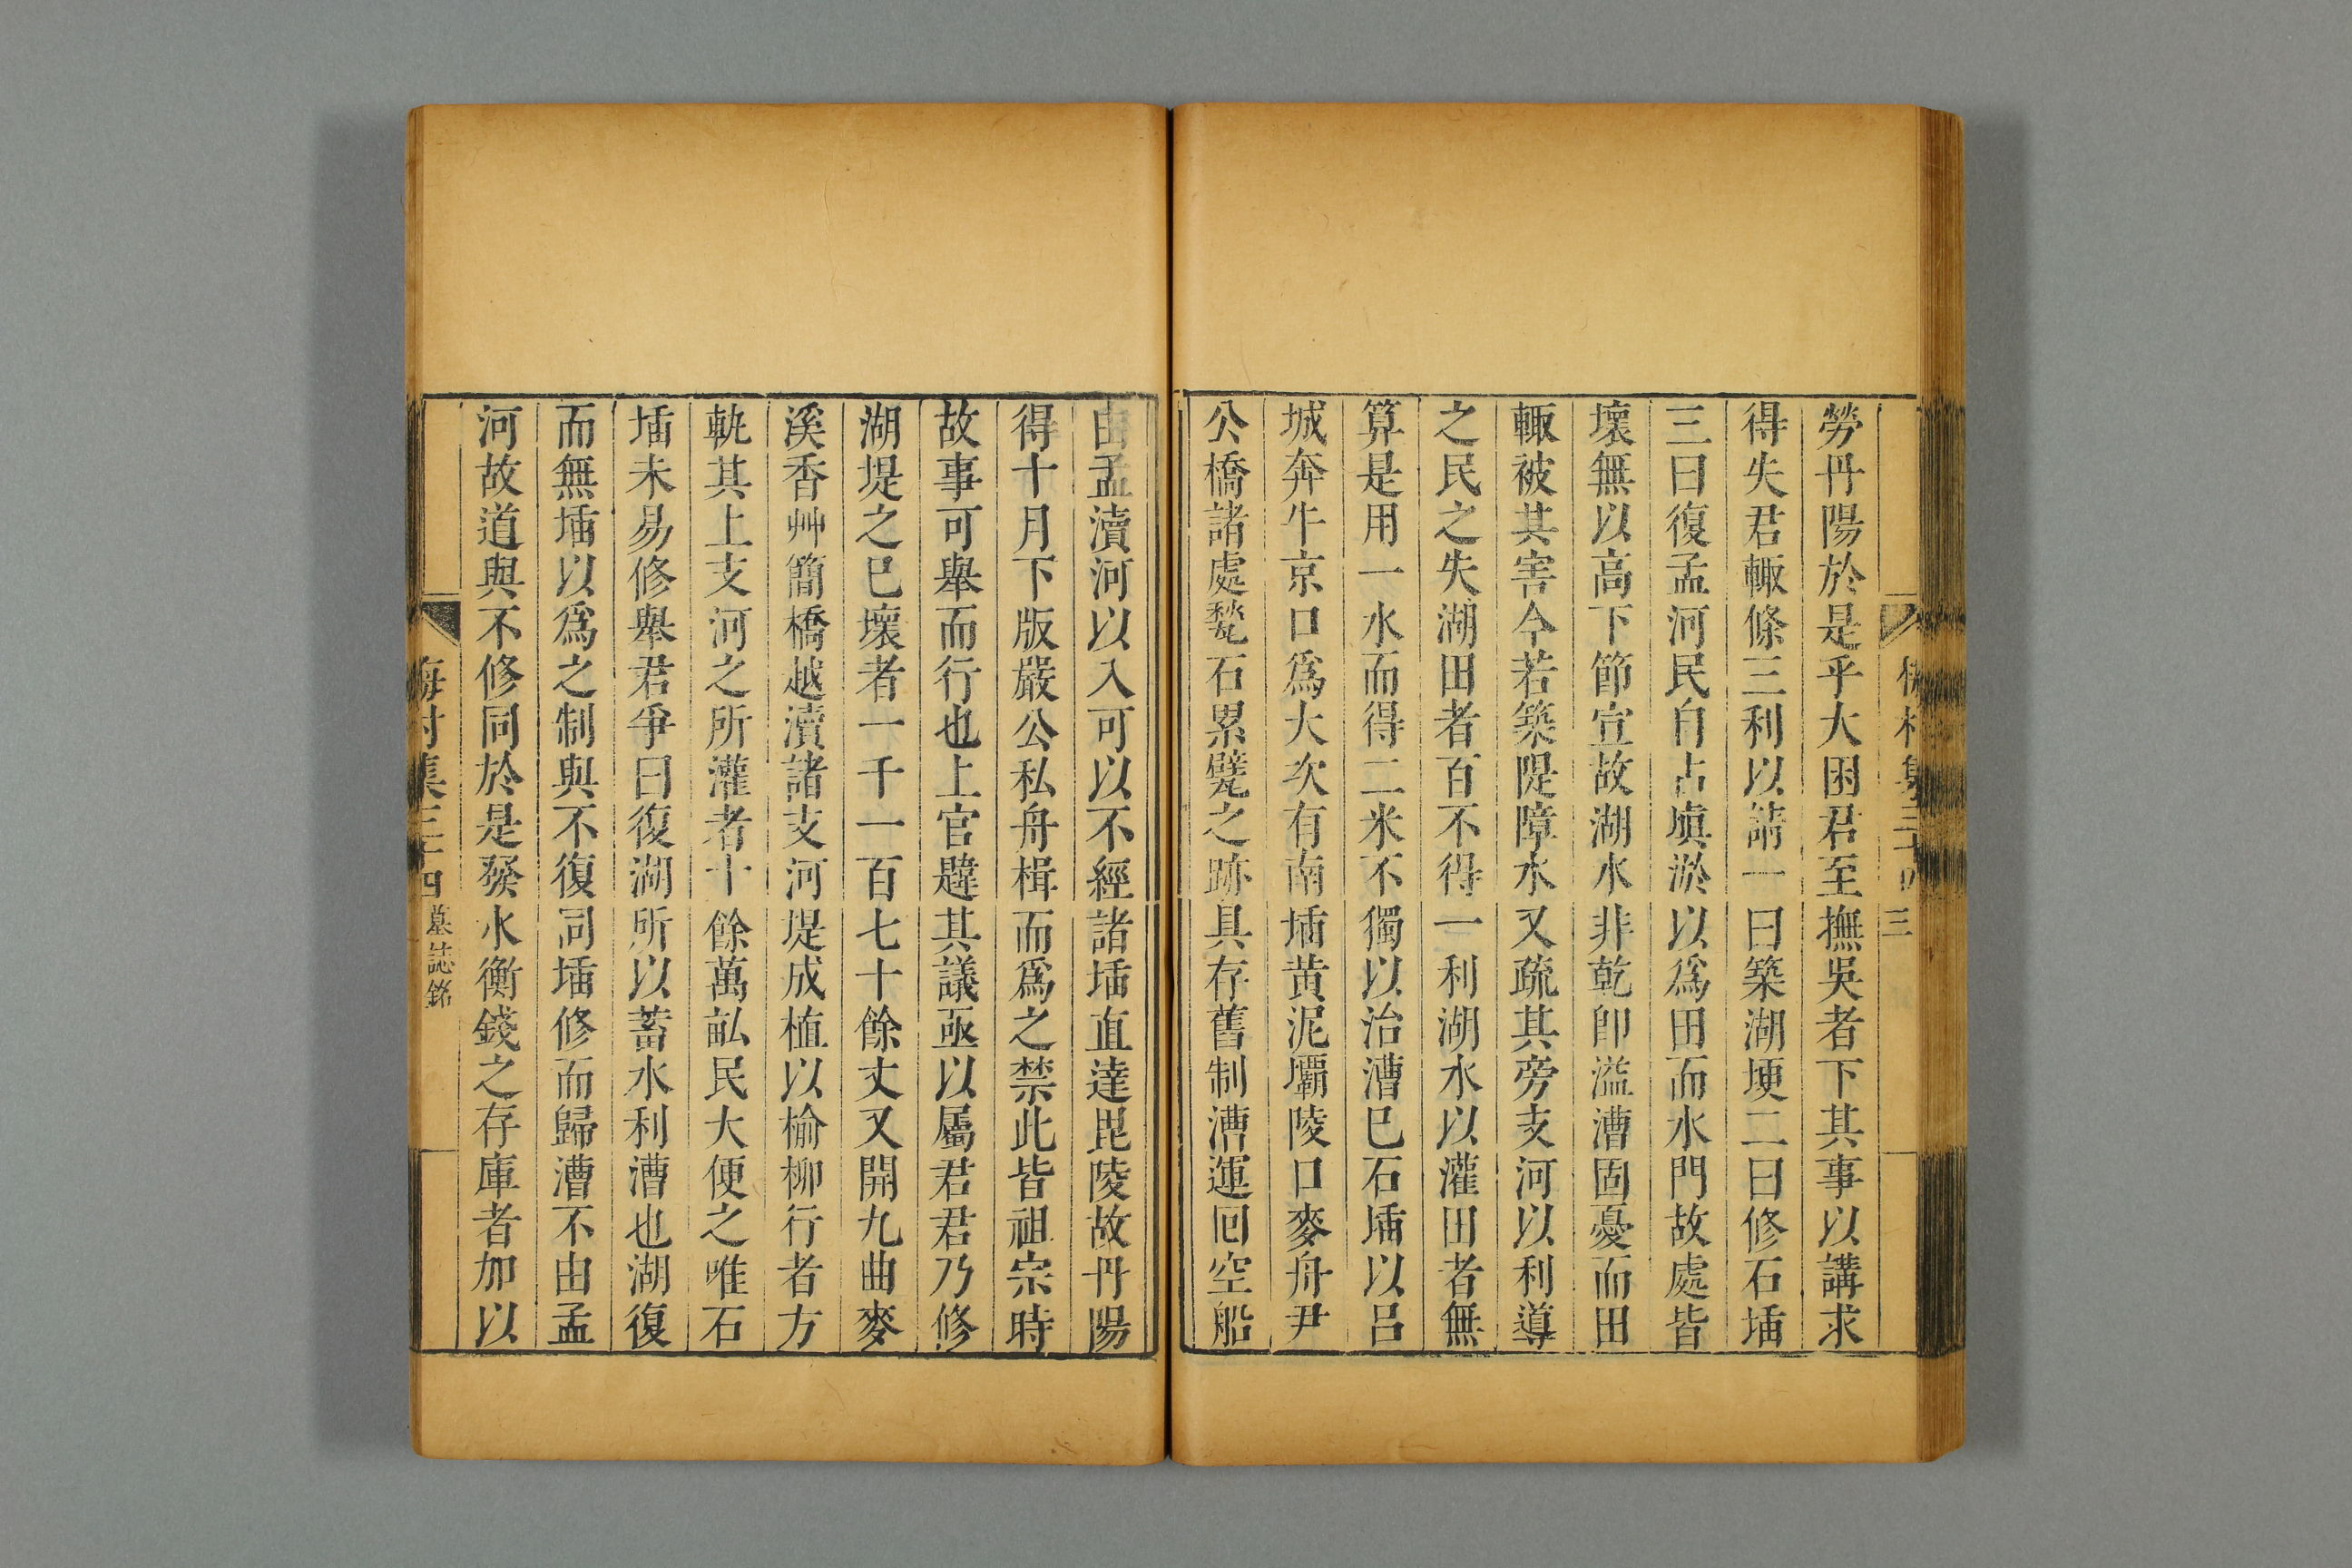 勞丹陽於是乎大困君至撫吳者下其事以講求
得失君輙條三利以請一曰築湖埂二曰修石𡍼
三曰復孟河民自占塡淤以爲田而水門故處皆
壞無以高下節宣故湖水非乾卽溢漕固憂而田
輙被其害今若築隄障水又疏其旁支河以利導
之民之失湖田者百不得一利湖水以灌田者無
算是用一水而得二米不獨以治漕巳石𡍼以呂
城奔牛京口爲大次有南𡍼黄泥壩陵口麥舟尹
公橋諸處甃石累甓之跡具存舊制漕運囘空船
由孟瀆河以入可以不經諸𡍼直達毘陵故丹陽
得十月下版嚴公私舟楫而爲之禁此皆祖宗時
故事可舉而行也上官韙其議亟以屬君君乃修
湖堤之巳壞者一千一百七十餘丈又開九曲麥
溪香艸簡橋越瀆諸支河堤成植以楡柳行者方
軌其上支河之所灌者十餘萬畝民大便之唯石
𡍼未易修舉君爭曰復湖所以蓄水利漕也湖復
而無𡍼以爲之制與不復同𡍼修而歸漕不由孟
河故道與不修同於是發水衡錢之存庫者加以
梅村集三十四 墓誌銘